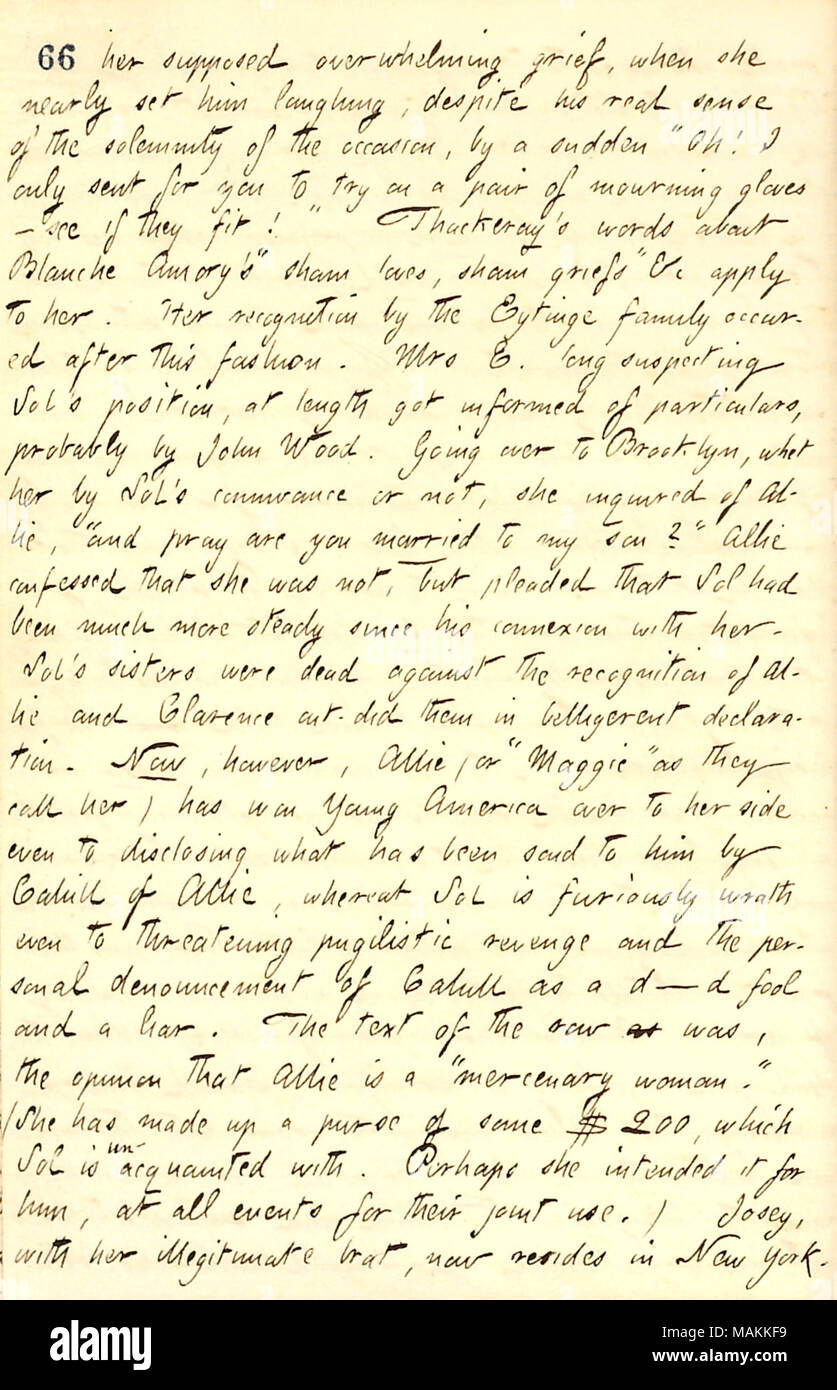 66 her supposed overwhelming grief, when she
nearly set him laughing, despite his real sense
of the solemnity of the occasion, by a sudden "Oh! I
only sent for you to try on a pair of mourning gloves
— see if they fit!" Thackeray's words about
Blanche Amory's "sham loves, sham griefs" &c apply
to her. Her recognition by the Eytinge family occur-
ed after this fashion. Mrs E. long suspecting
Sol's position, at length got informed of particulars,
probably by John Wood. Going over to Brooklyn, whet
her by Sol's connivance or not, she inquired of Al-
lie, "and pray are you married to my son?" Allie
confessed that she was not, but pleaded that Sol had
been much more steady since his connexion with her.
Sol's sisters were dead against the recognition of Al-
lie and Clarence out-did them in belligerent declara-
tion. Now, however, Allie (or "Maggie" as they
call her) has won Young America over to her side
even to disclosing what has been said to him by
Cahill of Allie, whereat Sol is furiously wrath
even to threatening pugilistic revenge and the per-
sonal denouncement of Cahill as a d—d fool
and a liar. The text of the row as was,
the opinion that Allie is a "mercenary woman."
(She has made up a purse of some $200, which
Sol is un-acquainted with. Perhaps she intended it for
him, at all events for their joint use.) Josey,
with her illegitimate brat, now resides in New York.
alamy
Image ID: MAKKF9
www.alamy.com